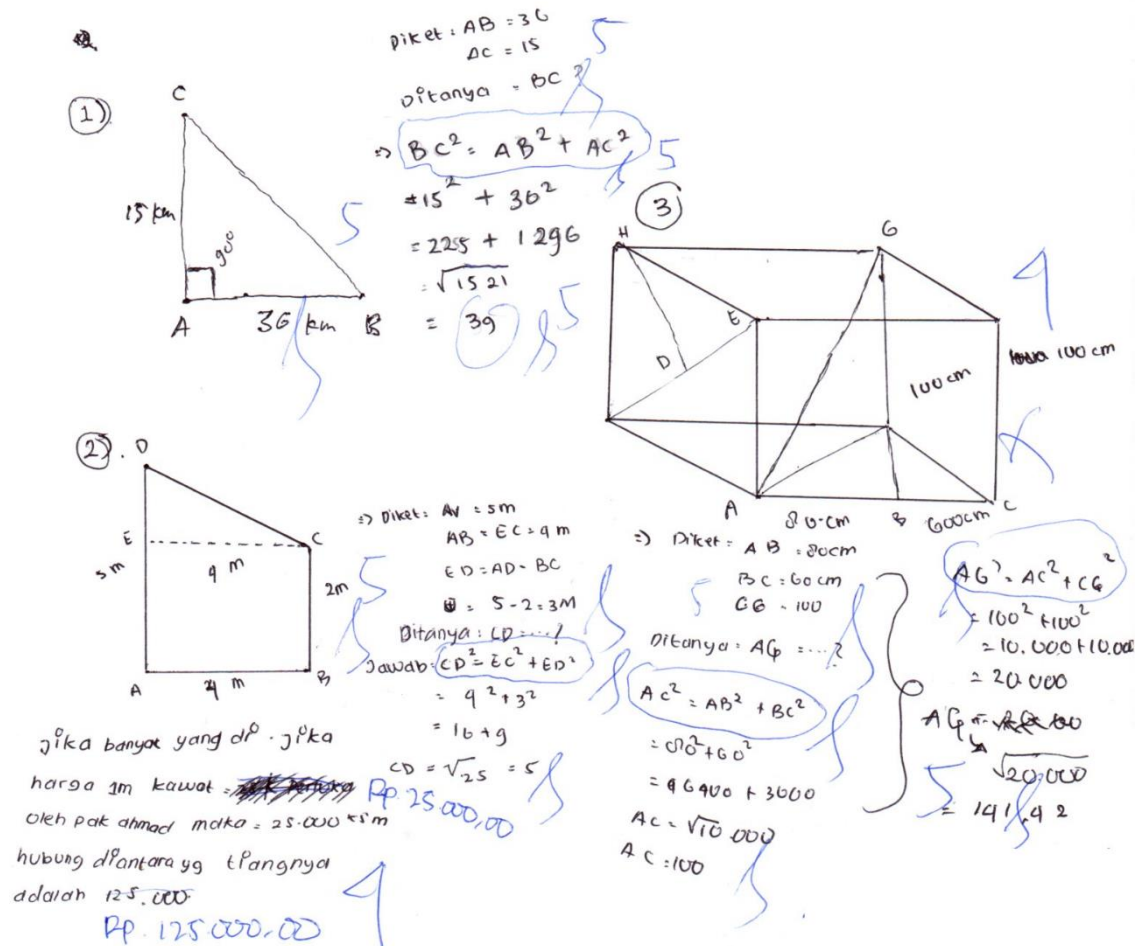 1)
C
15 km
90°
A
36 km
B
5
Diket : AB = 36
AC = 15
5
Ditanya = BC ?
=> BC² = AB² + AC²
5
= 15² + 36²
= 225 + 1296
= √1521
= 39
5
2).
D
E
5m
4 m
C
2m
A
4 m
B
5
=> Diket : AD = 5m
AB = EC = 4 m
ED = AD - BC
= 5 - 2 = 3M
Ditanya : CD = ...?
Jawab : CD² = EC² + ED²
= 4² + 3²
= 16 + 9
CD = √25 = 5
jika banyak yang di . jika
harga 1m kawat = Rp. 25.000,00
oleh pak ahmad maka = 25.000 x 5m
hubung diantara yg tiangnya
adalah 125.000
Rp. 125.000,00
4
3
H
G
E
D
100 cm
100 cm
A
80 cm
B
600cm
C
4
=> Diket : AB = 80cm
BC = 60 cm
CG = 100
5
Ditanya : AG = ...?
AC² = AB² + BC²
= 80² + 60²
AC = √10.000
AC = 100
AG² = AC² + CG²
= 100² + 100²
= 10.000 + 10.000
= 20.000
AG =
√20.000
= 141,42
5